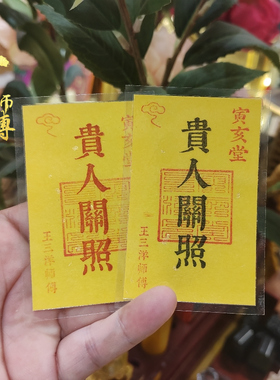 師傅
寅亥堂
貴人關照
王三洋師傅
寅亥堂
貴人關照
王三洋師傅